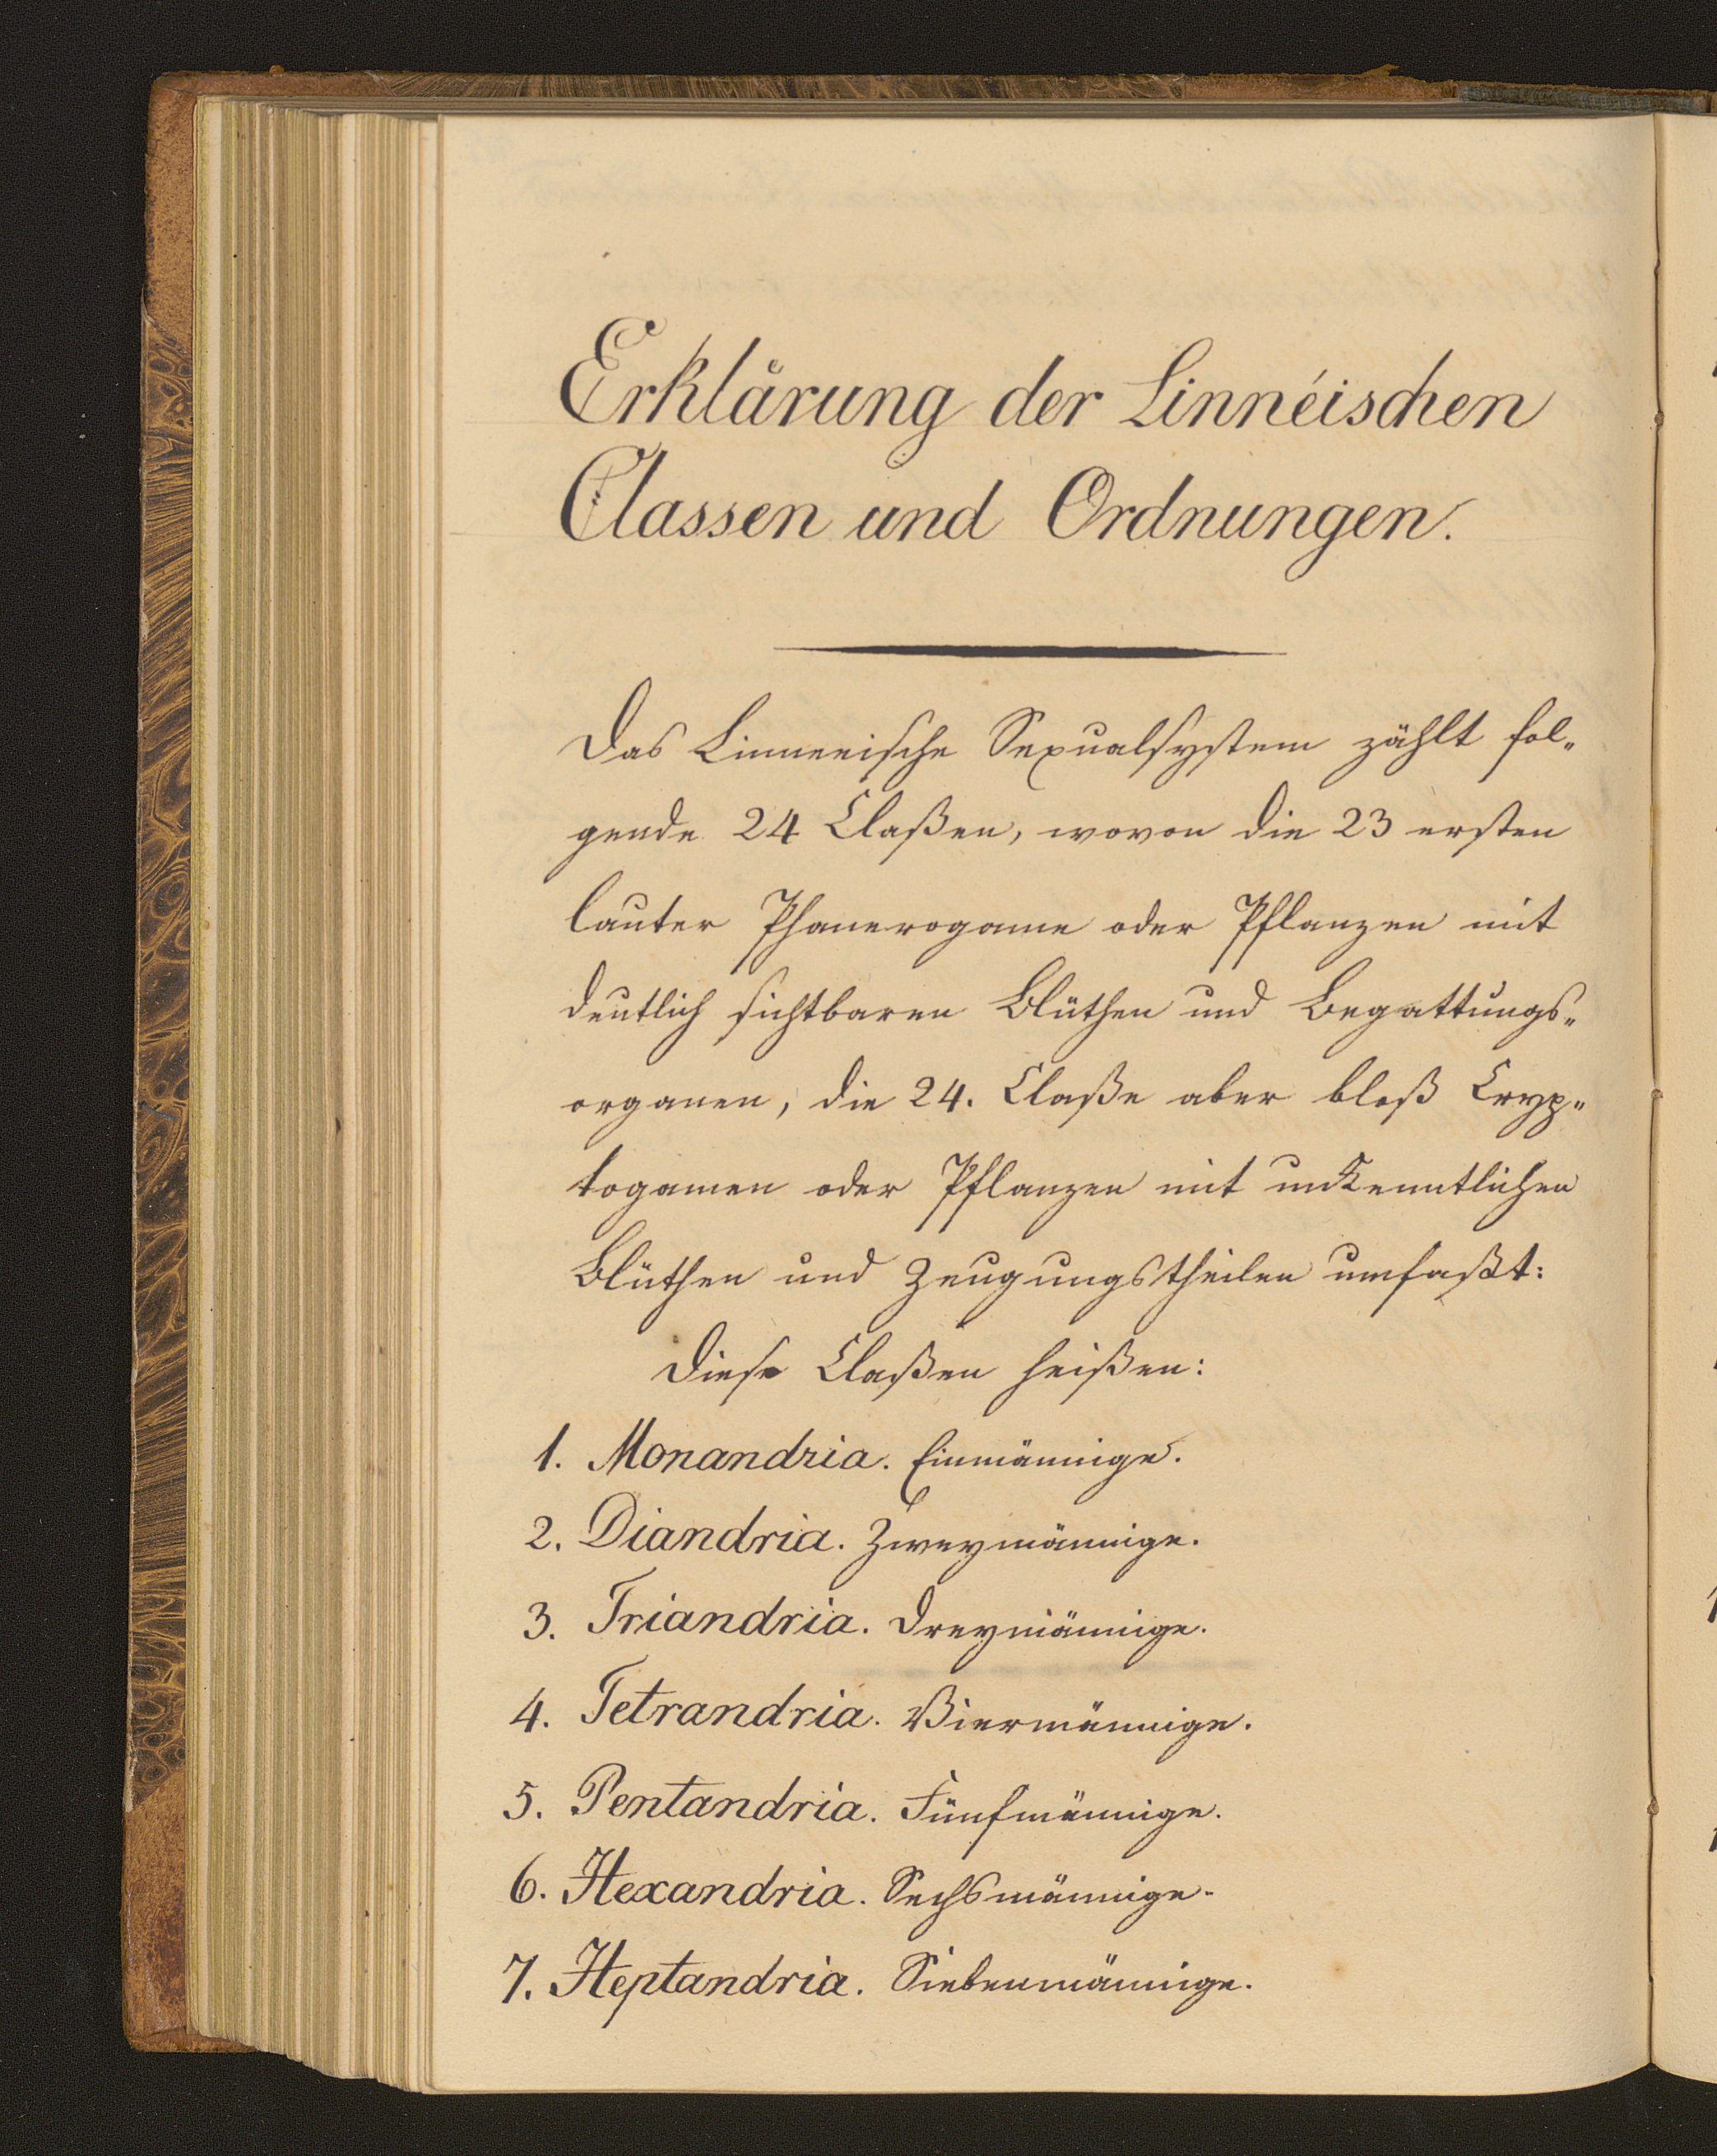 Erklärung der Linnéischen
Classen und Ordnungen.
Das Linneeische Sexualsystem zählt fol„
gende 24 Claßen, wovon die 23 ersten
lauter Phanerogame oder Pflanzen mit
deutlich sichtbaren Blüthen und Begattungs„
organen, die 24. Claße aber bloß Cryp„
togamen oder Pflanzen mit unkenntlichen
Blüthen und Zeugungstheilen umfaßt:
Diese Claßen heißen:
1. Monandria. Einmännige.
2. Diandria. Zweymännige.
3. Triandria. Dreymännige.
4. Tetrandria. Viermännige.
5. Pentandria. Fünfmännige.
6. Hexandria. Sechsmännige.
7. Heptandria. Siebenmännige.